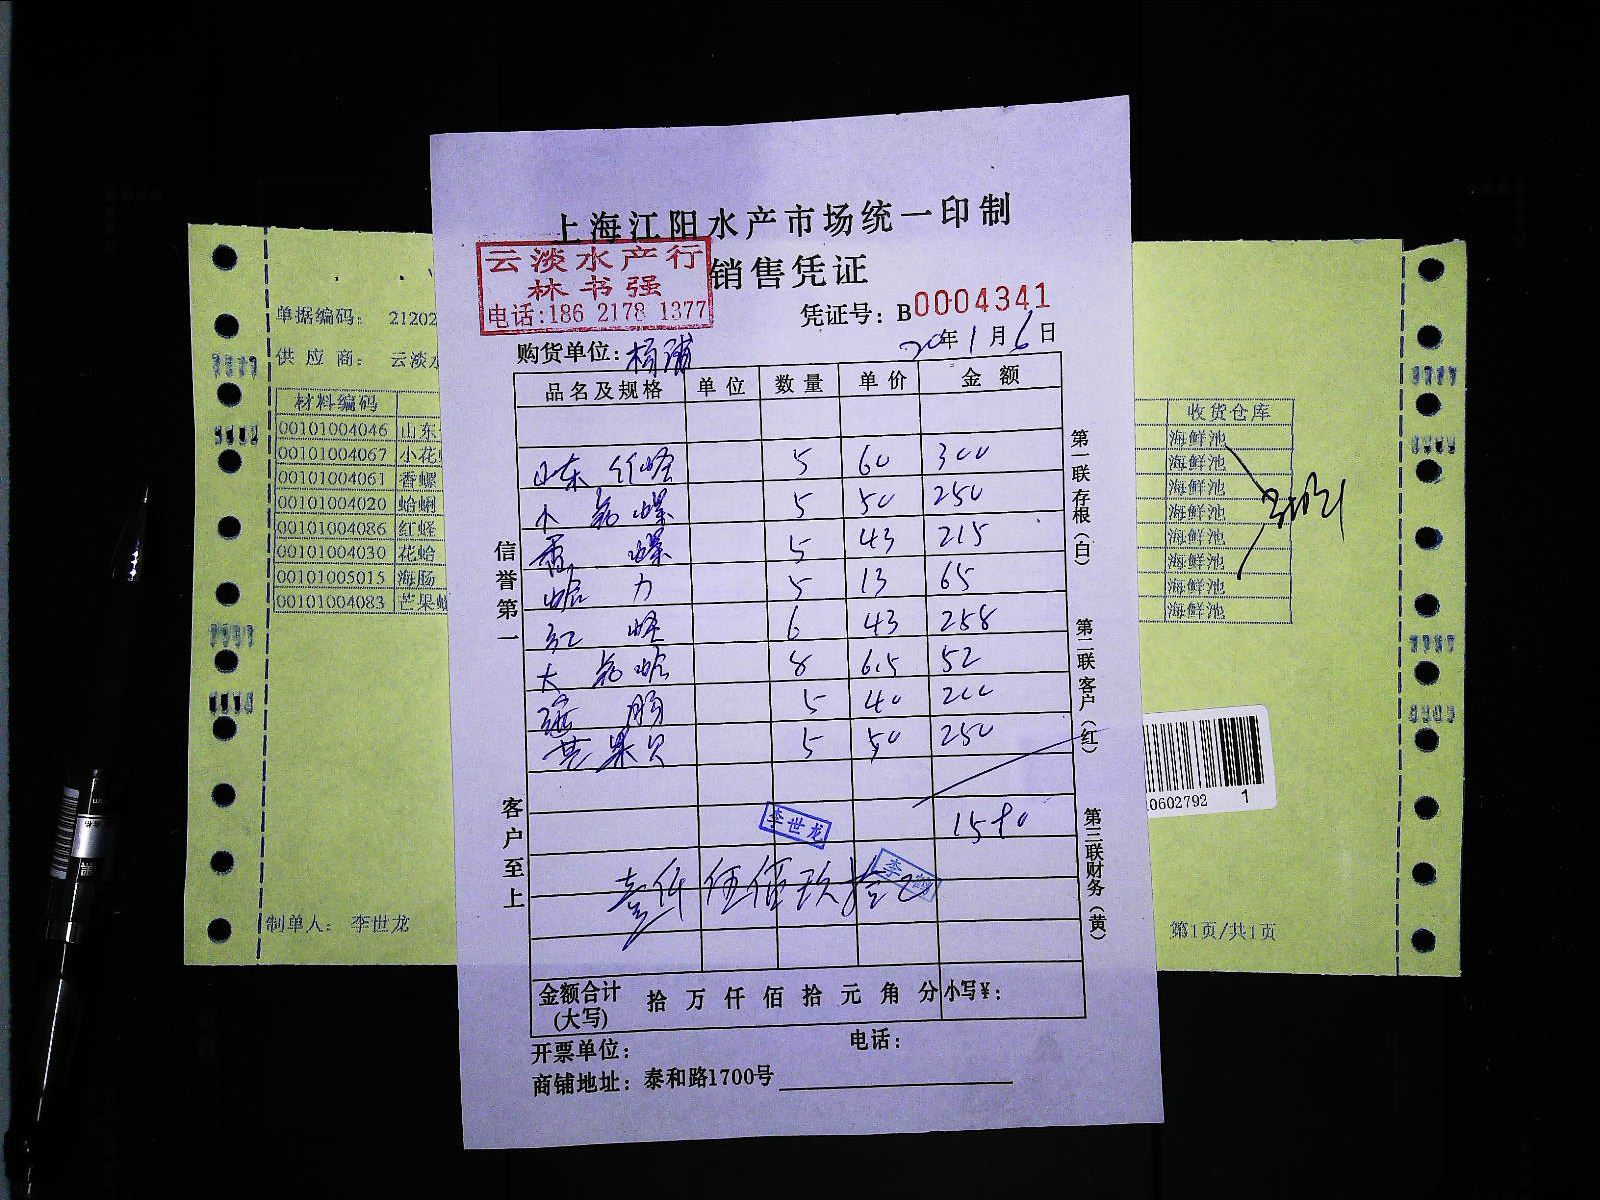 上海江阳水产市场统一印制
云淡水产行
林书强
电话:186 2178 1377
销售凭证
凭证号：B0004341
购货单位：杨浦
20年1月6日
品名及规格 单位 数量 单价 金额
山东竹蛏 5 60 300
小花螺 5 50 250
香螺 5 43 215
蛤力 5 13 65
红蛏 6 43 258
大花蛤 8 6.5 52
海肠 5 40 200
芒果贝 5 50 250
1590
李世龙
壹仟伍佰玖拾元
金额合计(大写) 拾 万 仟 佰 拾 元 角 分 小写¥：
开票单位：
电话：
商铺地址：泰和路1700号
信誉第一
客户至上
第一联 存根（白）
第二联 客户（红）
第三联财务（黄）
单据编码： 21202
供应商： 云淡水
材料编码
00101004046 山东
00101004067 小花
00101004061 香螺
00101004020 蛤蜊
00101004086 红蛏
00101004030 花蛤
00101005015 海肠
00101004083 芒果
制单人： 李世龙
收货仓库
海鲜池
海鲜池
海鲜池
海鲜池
海鲜池
海鲜池
海鲜池
海鲜池
0602792 1
第1页/共1页